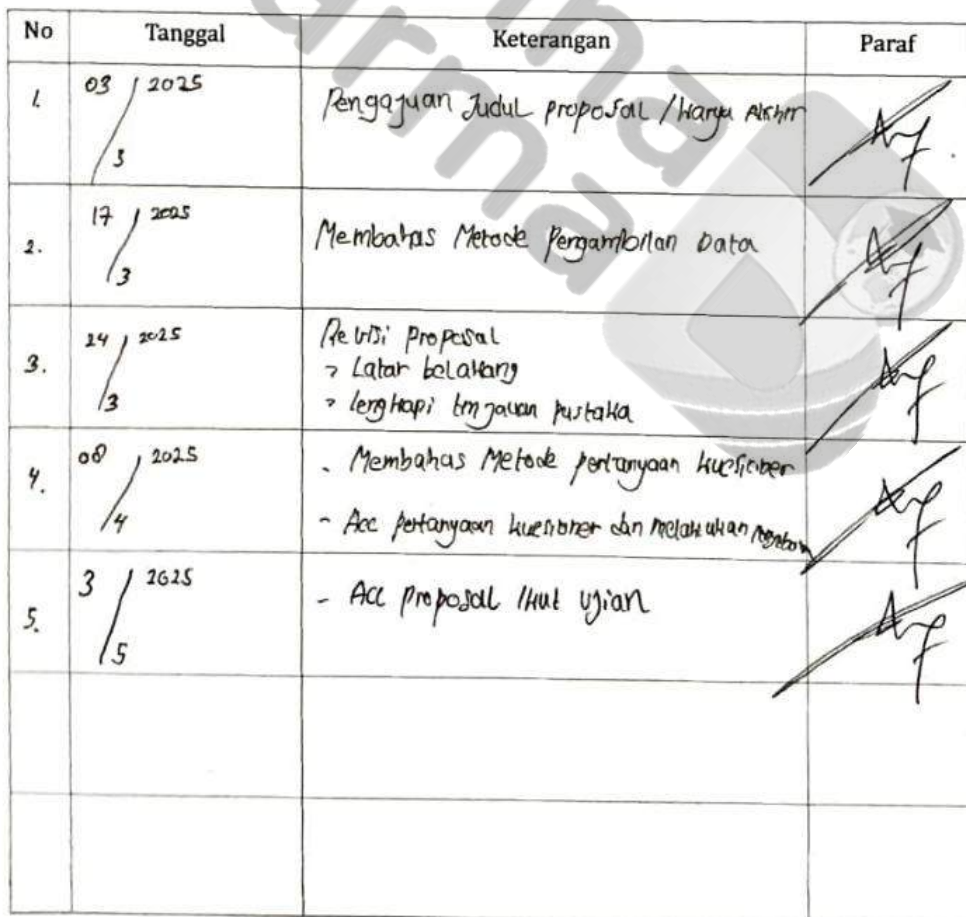 No Tanggal Keterangan Paraf
1. 03/3 2025 Pengajuan Judul proposal / Karya Akhir
2. 17/3 2025 Membahas Metode Pengambilan Data
3. 24/3 2025 Revisi proposal
> Latar belakang
> lengkapi tinjauan pustaka
4. 08/4 2025 - Membahas Metode pertanyaan kuesioner
- Acc pertanyaan kuesioner dan melakukan
5. 3/5 2025 - Acc proposal ikut ujian